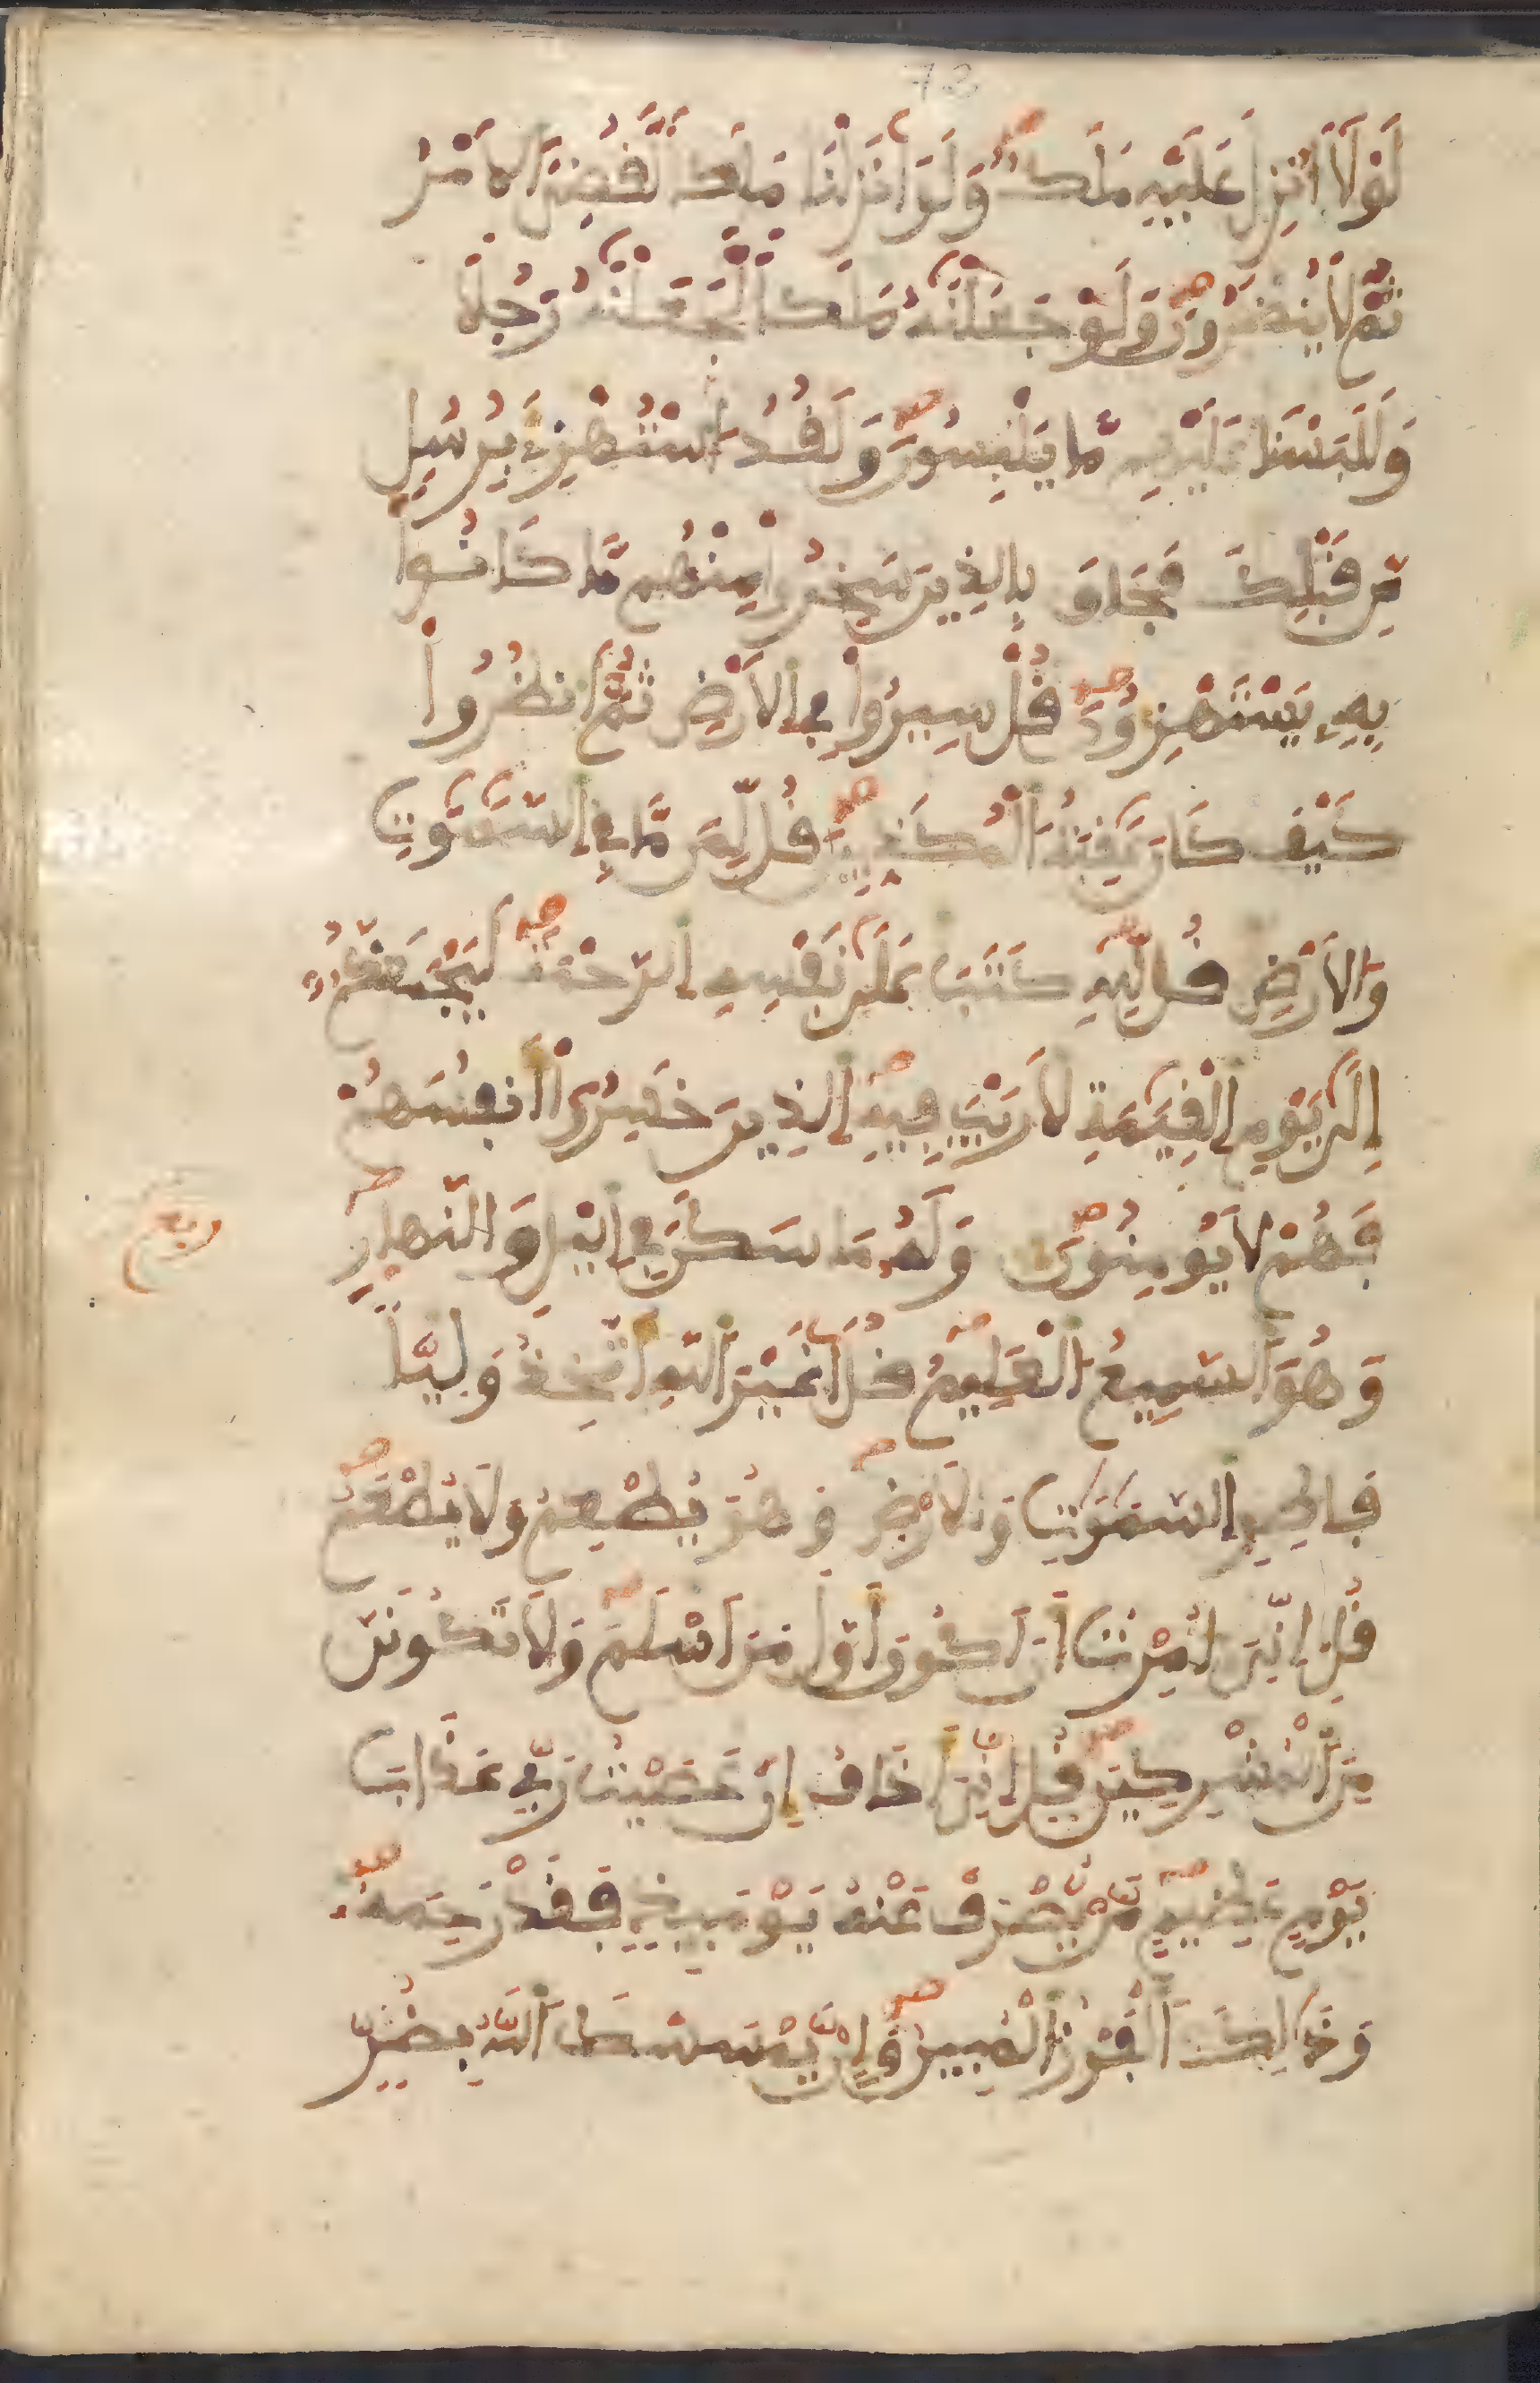 73
لَوْلَا أُنزِلَ عَلَيْهِ مَلَكٌ وَلَوَ انزَلْنَا مَلَكًا لَّقُضِيَ الَامْرُ
ثُمَّ لَا يُنظَرُونَ وَلَوْ جَعَلْنَٰهُ مَلَكًا لَّجَعَلْنَٰهُ رَجُلًا
وَلَلَبَسْنَا عَلَيْهِم مَّا يَلْبِسُونَ وَلَقَدُ اسْتُهْزِئَ بِرُسُلٍ
مِّن قَبْلِكَ فَحَاقَ بِالذِينَ سَخِرُوا مِنْهُم مَّا كَانُوا
بِهِ يَسْتَهْزِءُونَ قُلْ سِيرُوا فِي الَارْضِ ثُمَّ انظُرُوا
كَيْفَ كَانَ عَٰقِبَةُ الْمُكَذِّبِينَ قُل لِّمَن مَّا فِي السَّمَٰوَٰتِ
وَالَارْضِ قُل لِّلهِ كَتَبَ عَلَىٰ نَفْسِهِ الرَّحْمَةَ لَيَجْمَعَنَّكُمُ
إِلَىٰ يَوْمِ الْقِيَٰمَةِ لَا رَيْبَ فِيهِ الذِينَ خَسِرُوا أَنفُسَهُمْ
فَهُمْ لَا يُومِنُونَ وَلَهُ مَا سَكَنَ فِي اليْلِ وَالنَّهارِ
ربع
وَهُوَ السَّمِيعُ الْعَلِيمُ قُلَ اغَيْرَ اللهِ أَتَّخِذُ وَلِيًّا
فَاطِرِ السَّمَٰوَٰتِ وَالَارْضِ وَهُوَ يُطْعِمُ وَلَا يُطْعَمُ
قُلِ انِّيَ أُمِرْتُ أَنَ اكُونَ أَوَّلَ مَنَ اسْلَمَ وَلَا تَكُونَنَّ
مِنَ الْمُشْرِكِينَ قُلِ انِّيَ أَخَافُ إِنْ عَصَيْتُ رَبِّي عَذَابَ
يَوْمٍ عَظِيمٍ مَّنْ يُّصْرَفْ عَنْهُ يَوْمَئِذٍ فَقَدْ رَحِمَهُ
وَذَٰلِكَ الْفَوْزُ الْمُبِينُ وَإِنْ يَّمْسَسْكَ اللهُ بِضُرٍّ